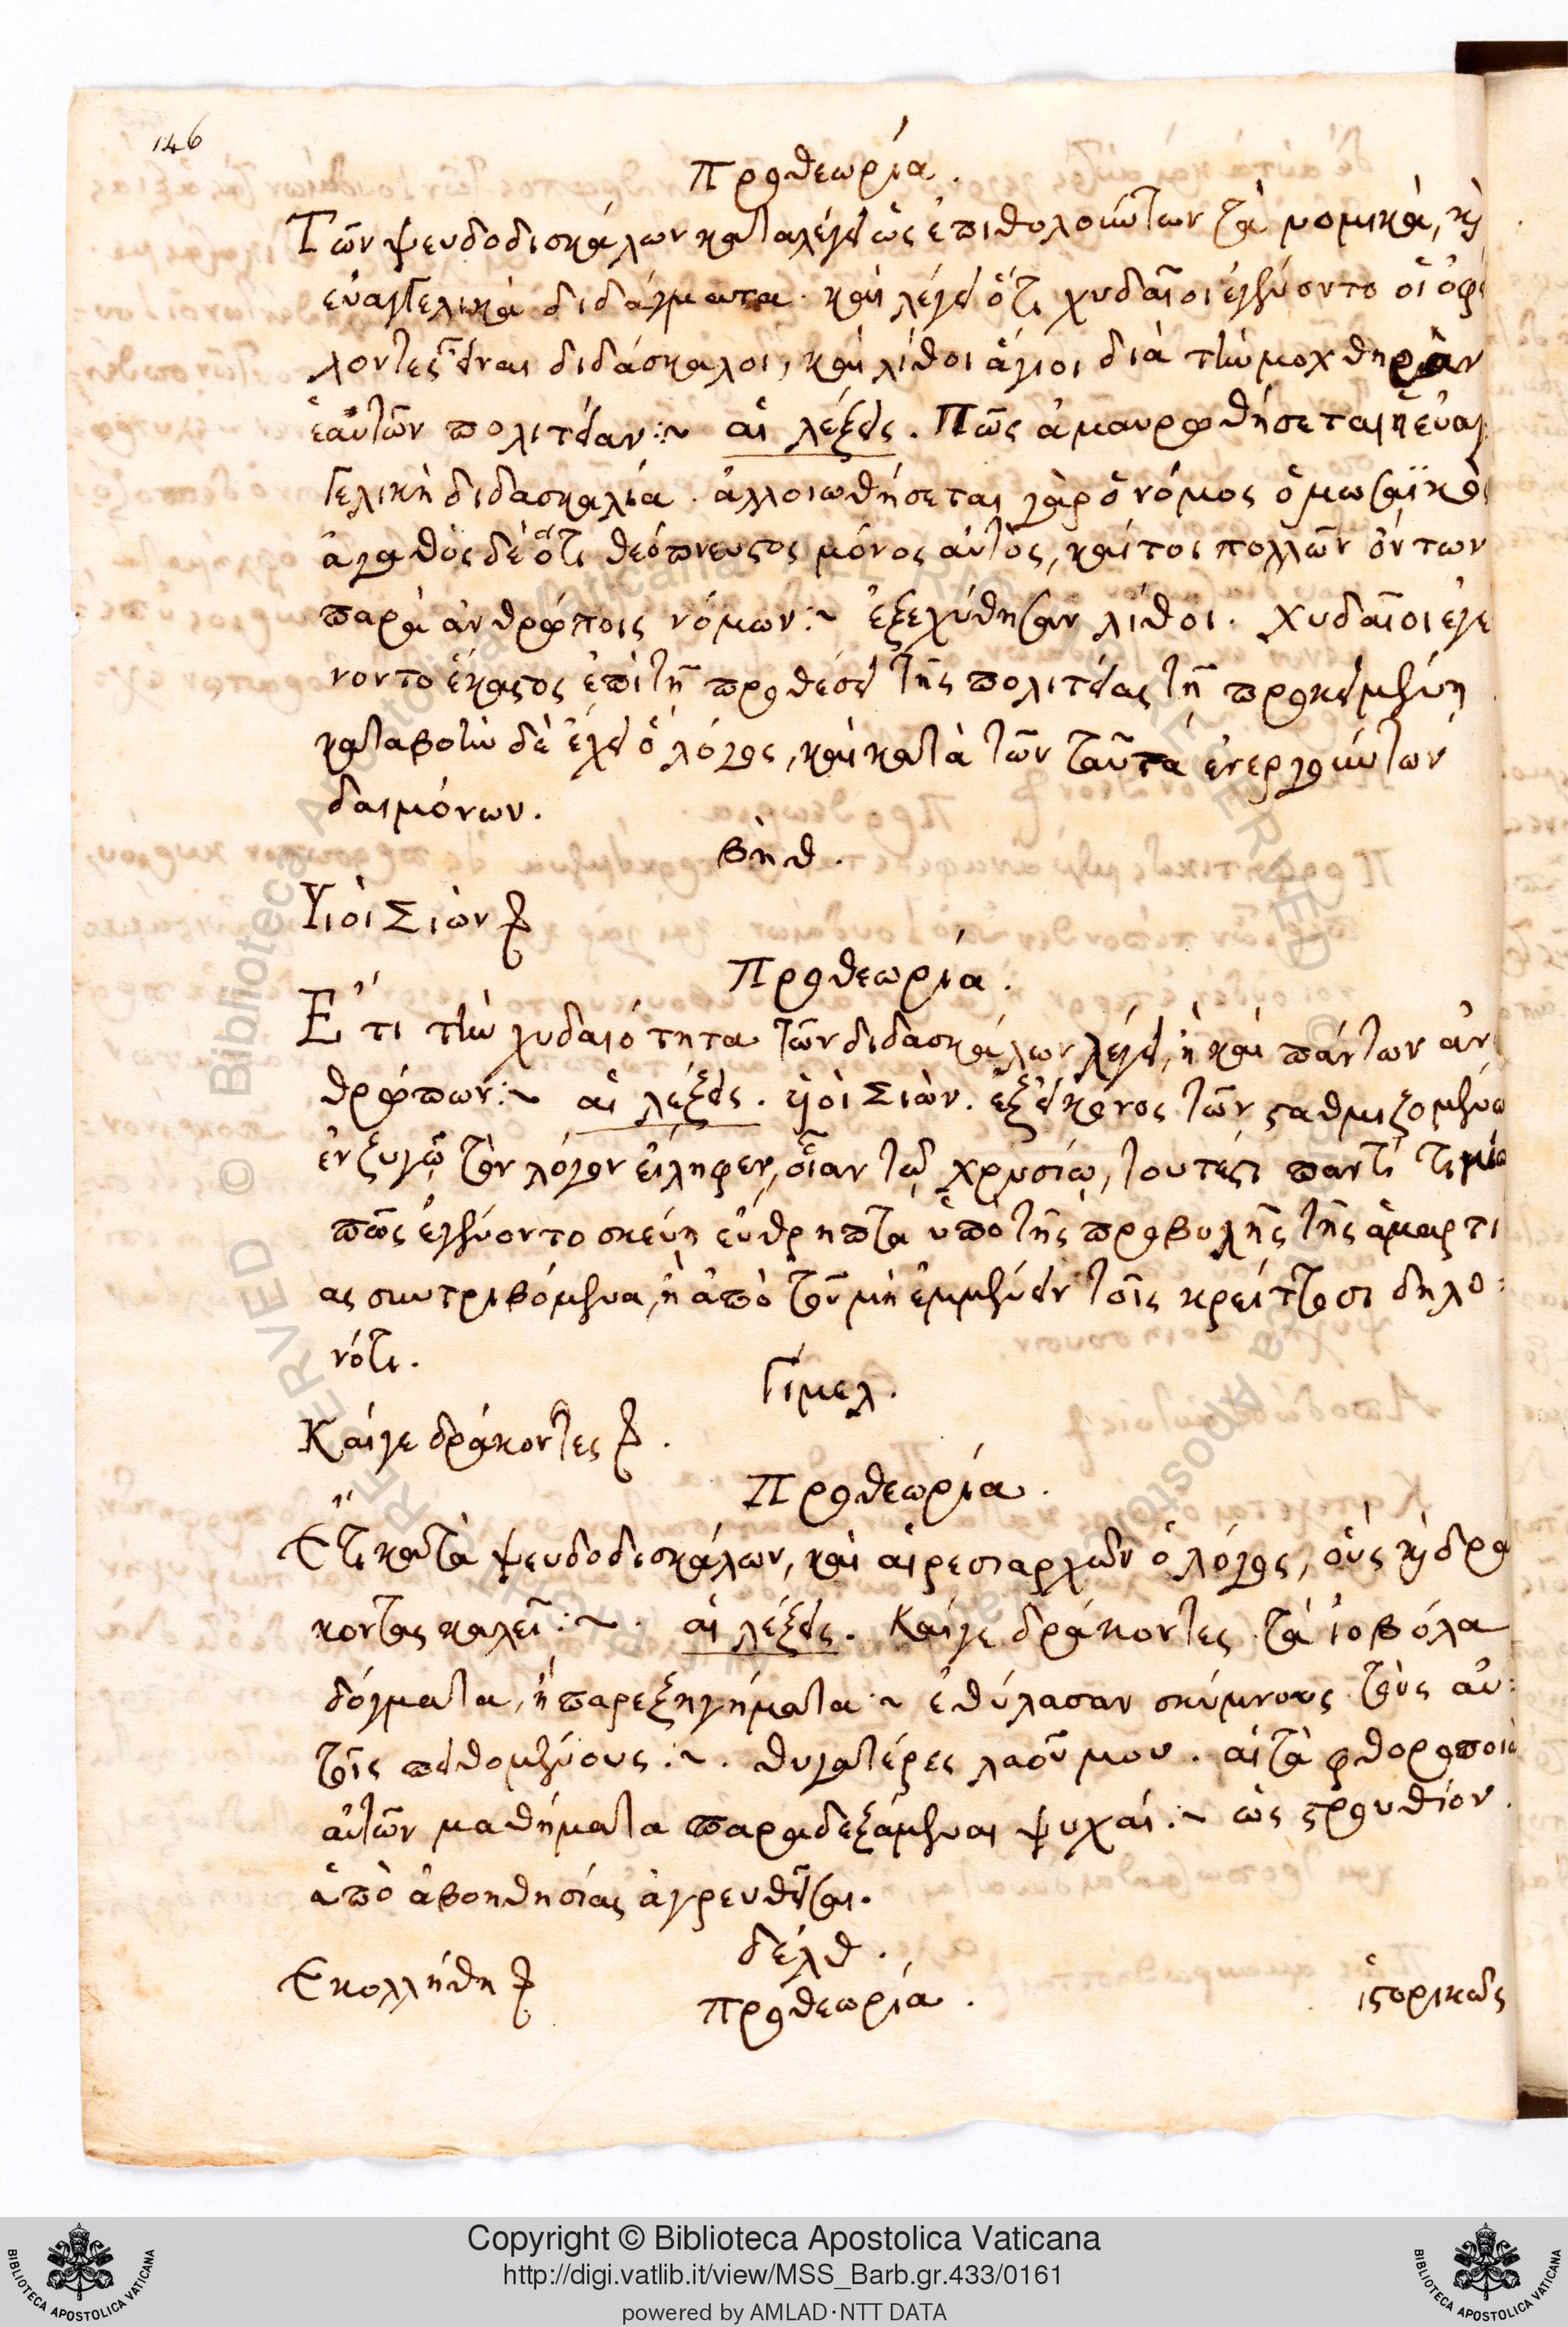 146
Προθεωρία.
Τῶν ψευδοδισκάλων καταλέγει ὡς ἐπιθολούντων τὰ νομικά, κỳ
εὐαγγελικὰ διδάγματα. καὶ λέγει ὅτι χυδαῖοι ἐγένοντο οἱ ὀφεί
λοντες εἶναι διδάσκαλοι, καὶ λίθοι ἅγιοι διὰ τὴν μοχθηρὰν
ἑαυτῶν πολιτείαν:~ αἱ λέξεις. Πῶς ἀμαυρωθήσεται ἡ εὐαγ
γελικὴ διδασκαλία. ἀλλοιωθήσεται γὰρ ὁ νόμος ὁ μωσαϊκὸς
ἀγαθὸς δὲ ὅτι θεόπνευστος μόνος αὐτὸς, καίτοι πολλῶν ὄντων
παρὰ ἀνθρώποις νόμων:~ ἐξεχύθησαν λίθοι. χυδαῖοι ἐγέ
νοντο ἕκαστος ἐπὶ τῇ προθέσει τῆς πολιτείας τῇ προκειμένη
καταβοὴν δὲ ἔχει ὁ λόγος, καὶ κατὰ τῶν ταῦτα ἐνεργούντων
δαιμόνων.
βὴθ.
Υἱοὶ Σιὼν
Προθεωρία.
Ἔτι τὴν χυδαιότητα τῶν διδασκάλων λέγει, ἢ καὶ πάντων ἀν
θρώπων:~ αἱ λέξεις. υἱοὶ Σιὼν. ἐξ εἰκόνος τῶν σταθμιζομένων
ἐν ζυγῷ τὸν λόγον εἴληφεν, οἷαν τῷ χρυσίῳ, τουτέστι παντὶ τιμίω
πῶς ἐγένοντο σκεύη εὔθρηπτα ὑπὸ τῆς προβολῆς τῆς ἁμαρτί
ας συντριβόμενα, ἢ ἀπὸ τοῦ μὴ ἐμμένειν τοῖς κρείττοσι δηλο:
νότι.
Γίμελ.
Καίγε δράκοντες
Προθεωρία.
Ἔτι κατὰ ψευδοδεσκάλων, καὶ αἱρεσιαρχῶν ὁ λόγος, οὓς κỳ δρά
κοντας καλεῖ:~. αἱ λέξεις. Καίγε δράκοντες τὰ ἰοβόλα
δόγματα, ἢ παρεξηγήματα:~ ἐθύλασαν σκύμνους τοὺς αὐ:
τοῖς πειθομένους:~. θυγατέρες λαοῦ μου. αἱ τὰ φθοροποιὰ
αὐτῶν μαθήματα παραδεξάμεναι ψυχαί:~ ὡς στρουθίον.
ἀπὸ ἀβοηθησίας ἀγρευθεῖσαι.
δέλθ.
Ἐκολλήθη
Προθεωρία.
ἱστορικῶς
Copyright © Biblioteca Apostolica Vaticana
http://digi.vatlib.it/view/MSS_Barb.gr.433/0161
powered by AMLAD·NTT DATA
BIBLIOTECA APOSTOLICA VATICANA
BIBLIOTECA APOSTOLICA VATICANA